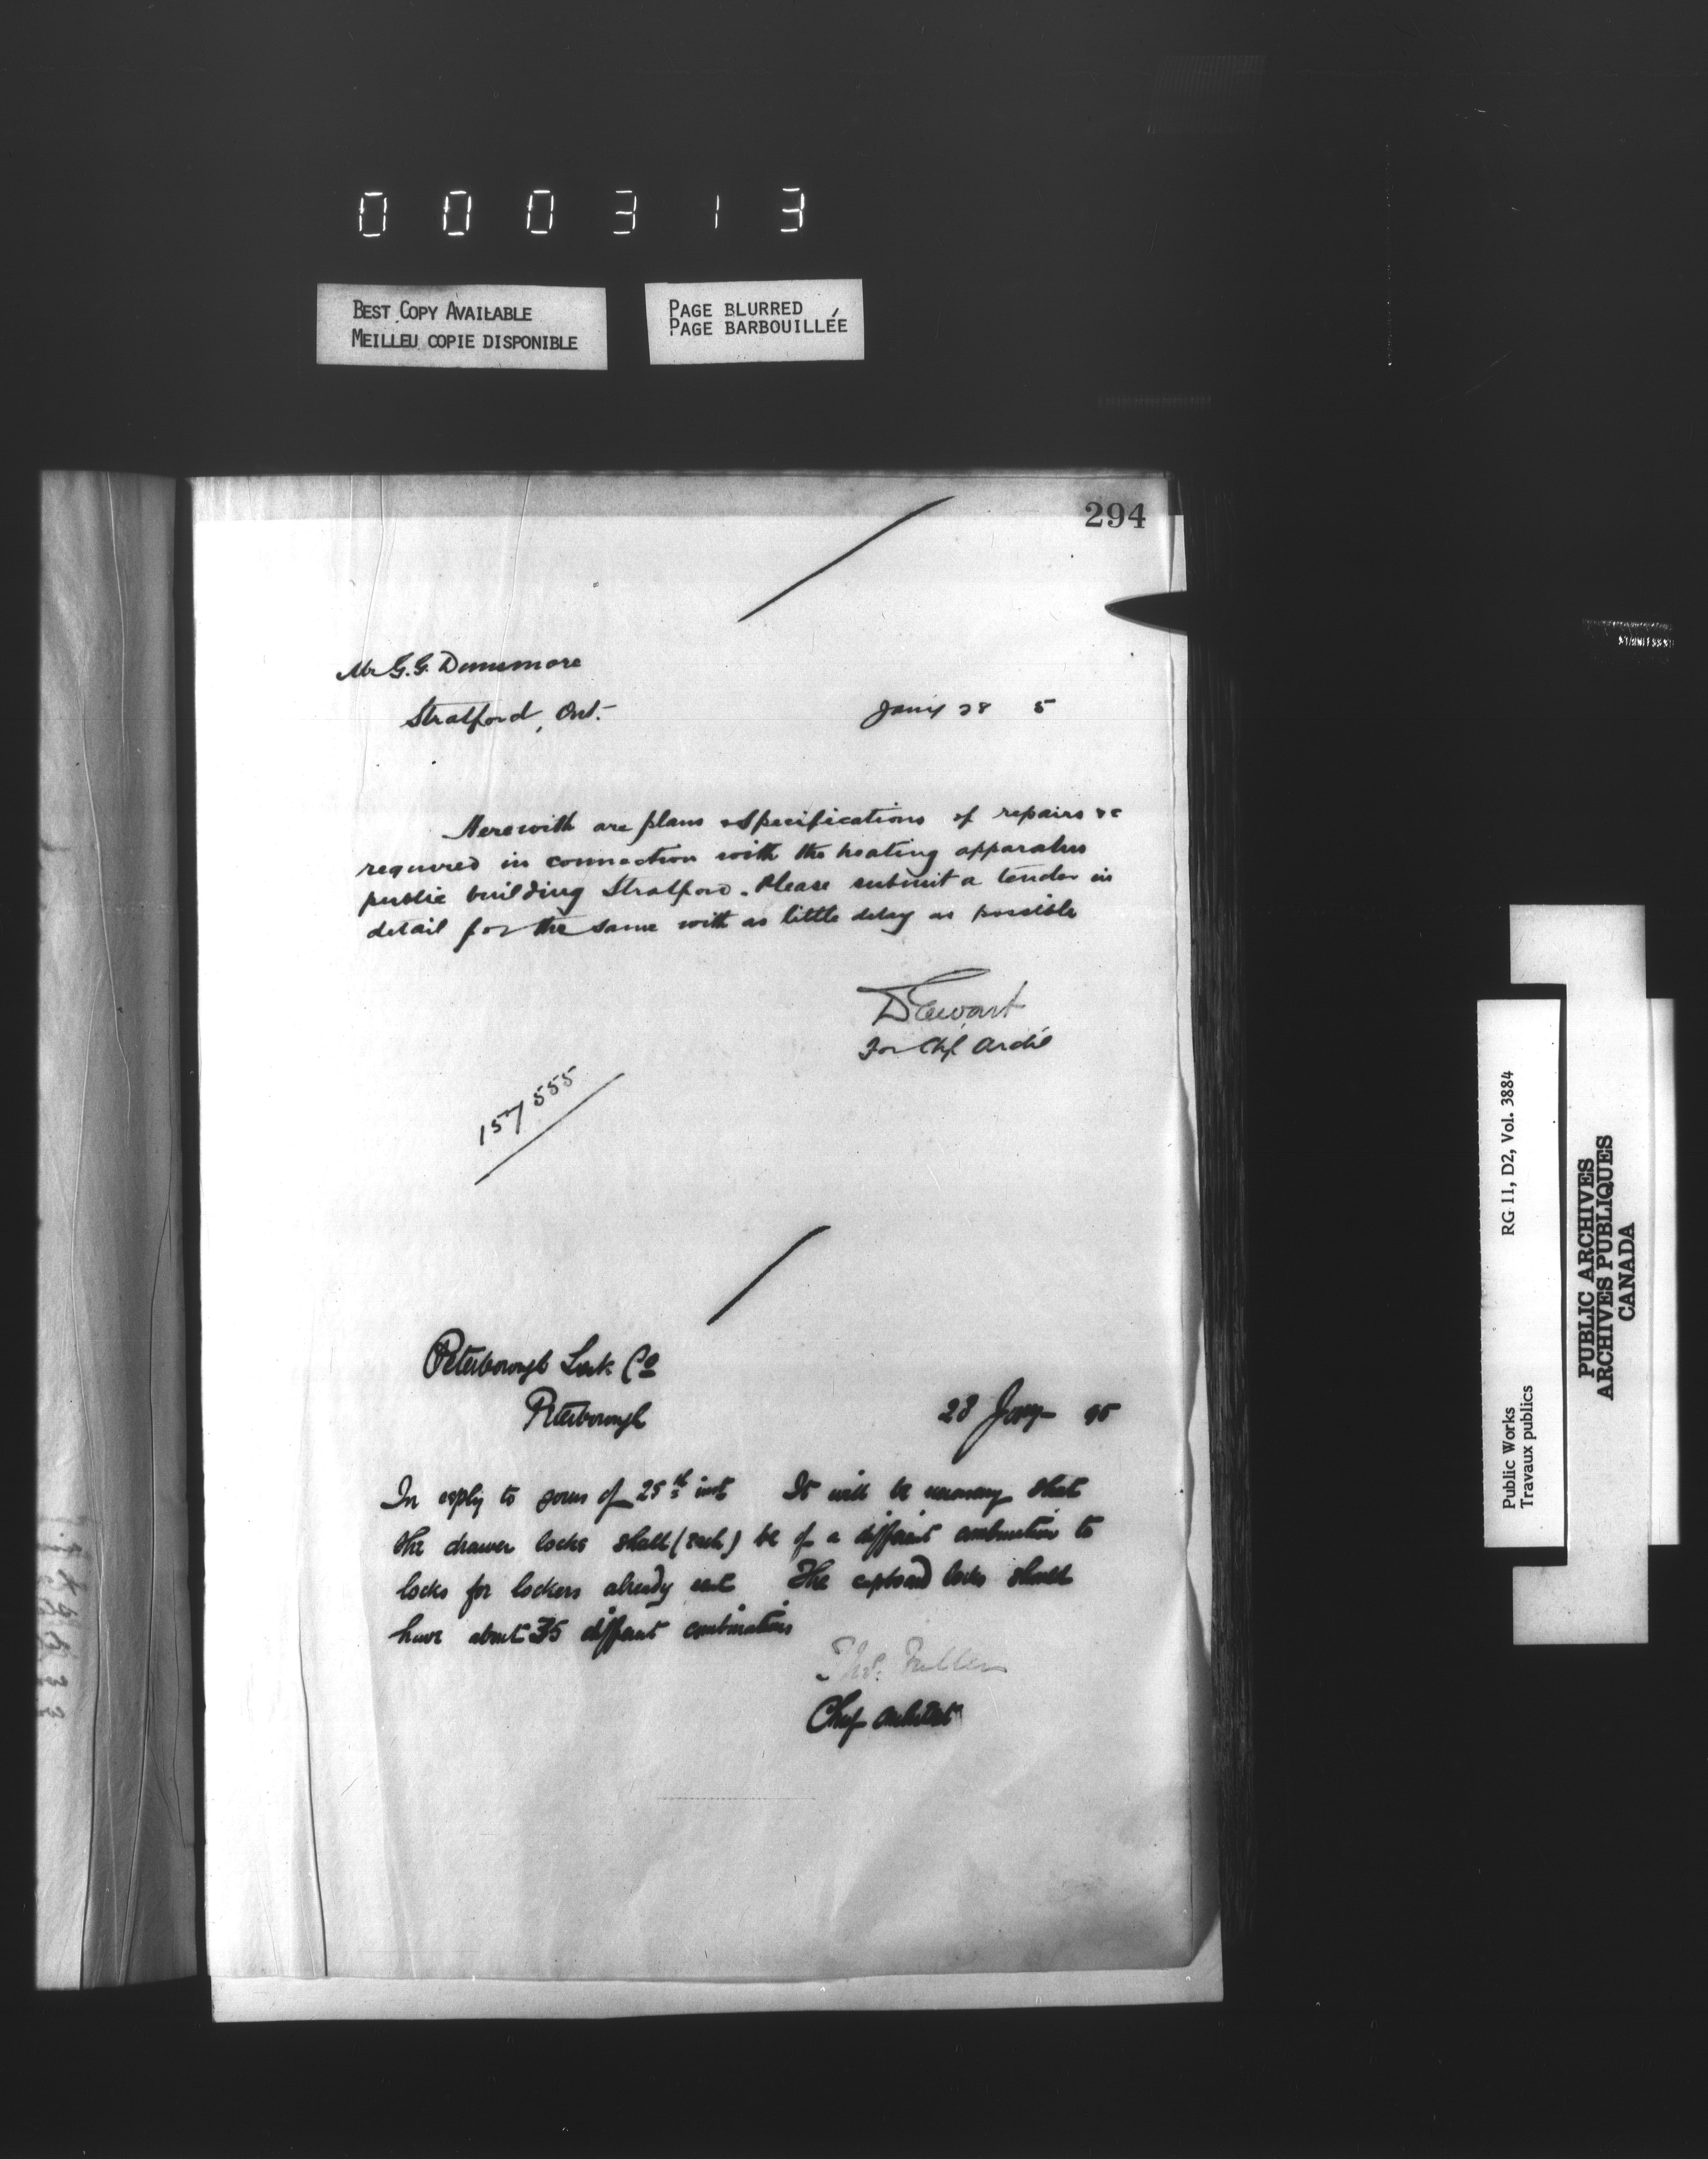 000313
BEST COPY AVAILABLE
MEILLEU COPIE DISPONIBLE
PAGE BLURRED
PAGE BARBOUILLÉE
294
Mr G.G. Dunsmore
Stratford, Ont.
Jany 28 5
Herewith are plans & specifications of repairs &c
required in connection with the heating apparatus
public building Stratford. Please submit a tender in
detail for the same with as little delay as possible
D Ewart
For Chf Archt
157555
Peterborough Lock Co
Peterborough
28 Jany 95
In reply to yours of 25th inst It will be necessary that
the drawer locks shall (each) be of a different combination to
locks for lockers already sent The cupboard locks should
have about 35 different combinations
Thos. Fuller
Chief Architect
RG 11, D2, Vol. 3884
Public Works
Travaux publics
PUBLIC ARCHIVES
ARCHIVES PUBLIQUES
CANADA